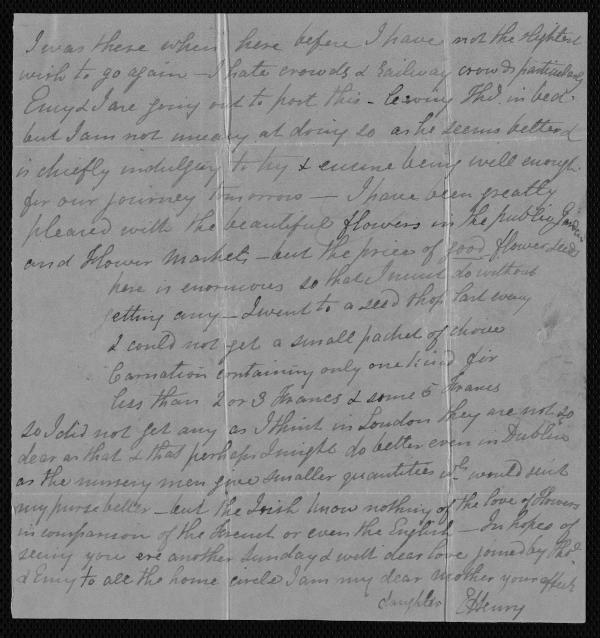 I was there when here before I have not the slightest
wish to go again – I hate crowds & railway crowds particularly
Emy & I are going out to post this – leaving Thos. in bed –
but I am not uneasy at doing so as he seems better &
is chiefly indulging to try & ensure being well enough
for our journey tomorrow – I have been greatly
pleased with the beautiful flowers in the public Gardens
and Flower Markets – but the price of good flower seeds
here is enormous so that I must do without
getting any – I went to a seed shop last eveng
& could not get a small packet of choice
Carnation containing only one kind for
less than 2 or 3 Francs & some 5 Francs
so I did not get any as I think in London they are not so
dear as that & that perhaps I might do better even in Dublin
as the nursery men give smaller quantities wh. would suit
my purse better – but the Irish know nothing of the love of flowers
in comparison of the French or even the English – In hopes of
seeing you ere another Sunday & with dear love joined by Thos.
& Emy to all the home circle I am my dear Mother your affect.
daughter E Henry